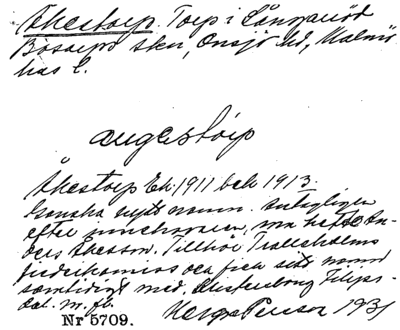 Åkestorp. Torp i Långaröd
Bosarps skn, Onsjö hd, Malmö-
hus L.
augestorp
Åkestorp Ek. 1911 och 1913.
Ganska nytt namn. Antagligen
efter innehavaren, som hette An-
ders Åkesson. Tillhör Trolleholms
fideikomiss och fick sitt namn
samtidigt med Kristenborg, Filips-
dal m. fl.
Persson 1931
Nr 5709.